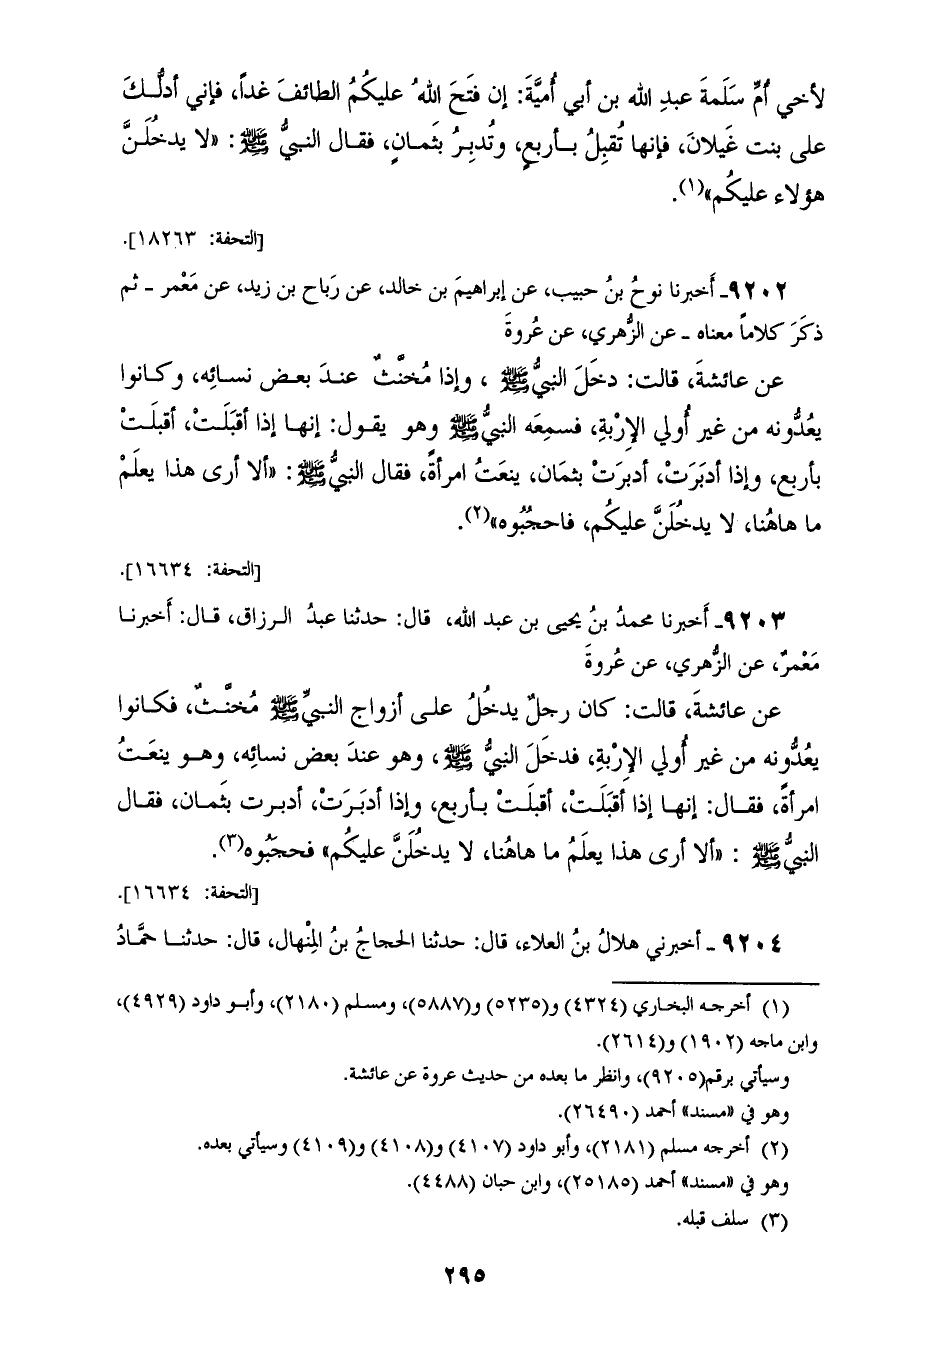 لأخي أُمِّ سَلَمةَ عبدِ الله بن أبي أُميَّةَ: إن فتَحَ اللهُ عليكُمُ الطائفَ غداً، فإني أدلُّـكَ
على بنت غَيلانَ، فإنها تُقبِلُ بـأربعٍ، وتُدبِرُ بثَمـانٍ، فقـال النبيُّ ﷺ: «لا يدخُلَـنَّ
هؤلاء عليكُم»(١).
[التحفة: ١٨٢٦٣].
٩٢٠٢ـ أَخبرنا نوحُ بنُ حبيب، عن إبراهيمَ بن خالد، عن رَباح بن زيد، عن مَعْمر ـ ثم
ذكَرَ كلاماً معناه ـ عن الزُّهري، عن عُروةَ
عن عائشةَ، قالت: دخلَ النبيُّ ﷺ، وإذا مُخنَّثٌ عنـدَ بعـض نسـائِه، وكـانوا
يعُدُّونه من غير أُولي الإِرْبةِ، فسمِعَه النبيُّ ﷺ وهو يقـول: إنهـا إذا أقبَلَـتْ، أقبلَـتْ
بأربع، وإذا أدبَرَتْ، أدبرَتْ بثمَان، ينعَتُ امرأةً، فقال النبيُّ ﷺ: «ألا أرى هذا يعلَمْ
ما هاهُنا، لا يدخُلَنَّ عليكُم، فـاحجُبُوه»(٢).
[التحفة: ١٦٦٣٤].
٩٢٠٣ـ أَخبرنا محمدُ بنُ يحيى بن عبد الله، قال: حدثنا عبدُ الـرزاق، قـال: أَخبرنـا
مَعْمرٌ، عن الزُّهري، عن عُروةَ
عن عائشةَ، قالت: كان رجلٌ يدخُلُ علـى أزواج النـبيِّ ﷺ مُخنَّـثٌ، فكـانوا
يعُدُّونه من غير أُولي الإِرْبةِ، فدخَلَ النبيُّ ﷺ، وهو عندَ بعض نسائِه، وهـو ينعَـتُ
امرأةً، فقـال: إنهـا إذا أقبَلَـتْ، أقبلَـتْ بـأربع، وإذا أدبَـرَتْ، أدبـرت بثَمـان، فقـال
النبيُّ ﷺ : «ألا أرى هذا يعلَمُ ما هاهُنا، لا يدخُلَنَّ عليكُم» فحجَبُوه(٣).
[التحفة: ١٦٦٣٤].
٩٢٠٤ ـ أخبرني هلالُ بنُ العلاء، قال: حدثنا الحجاجُ بنُ المِنْهال، قال: حدثنـا حمَّـادُ
(١) أخرجـه البخـاري (٤٣٢٤) و(٥٢٣٥) و(٥٨٨٧)، ومسـلم (٢١٨٠)، وأبـو داود (٤٩٢٩)،
وابن ماجه (١٩٠٢) و(٢٦١٤).
وسيأتي برقم(٩٢٠٥)، وانظر ما بعده من حديث عروة عن عائشة.
وهو في «مسند» أحمد (٢٦٤٩٠).
(٢) أخرجه مسلم (٢١٨١)، وأبو داود (٤١٠٧) و(٤١٠٨) و(٤١٠٩) وسيأتي بعده.
وهو في «مسند» أحمد (٢٥١٨٥)، وابن حبان (٤٤٨٨).
(٣) سلف قبله.
٢٩٥